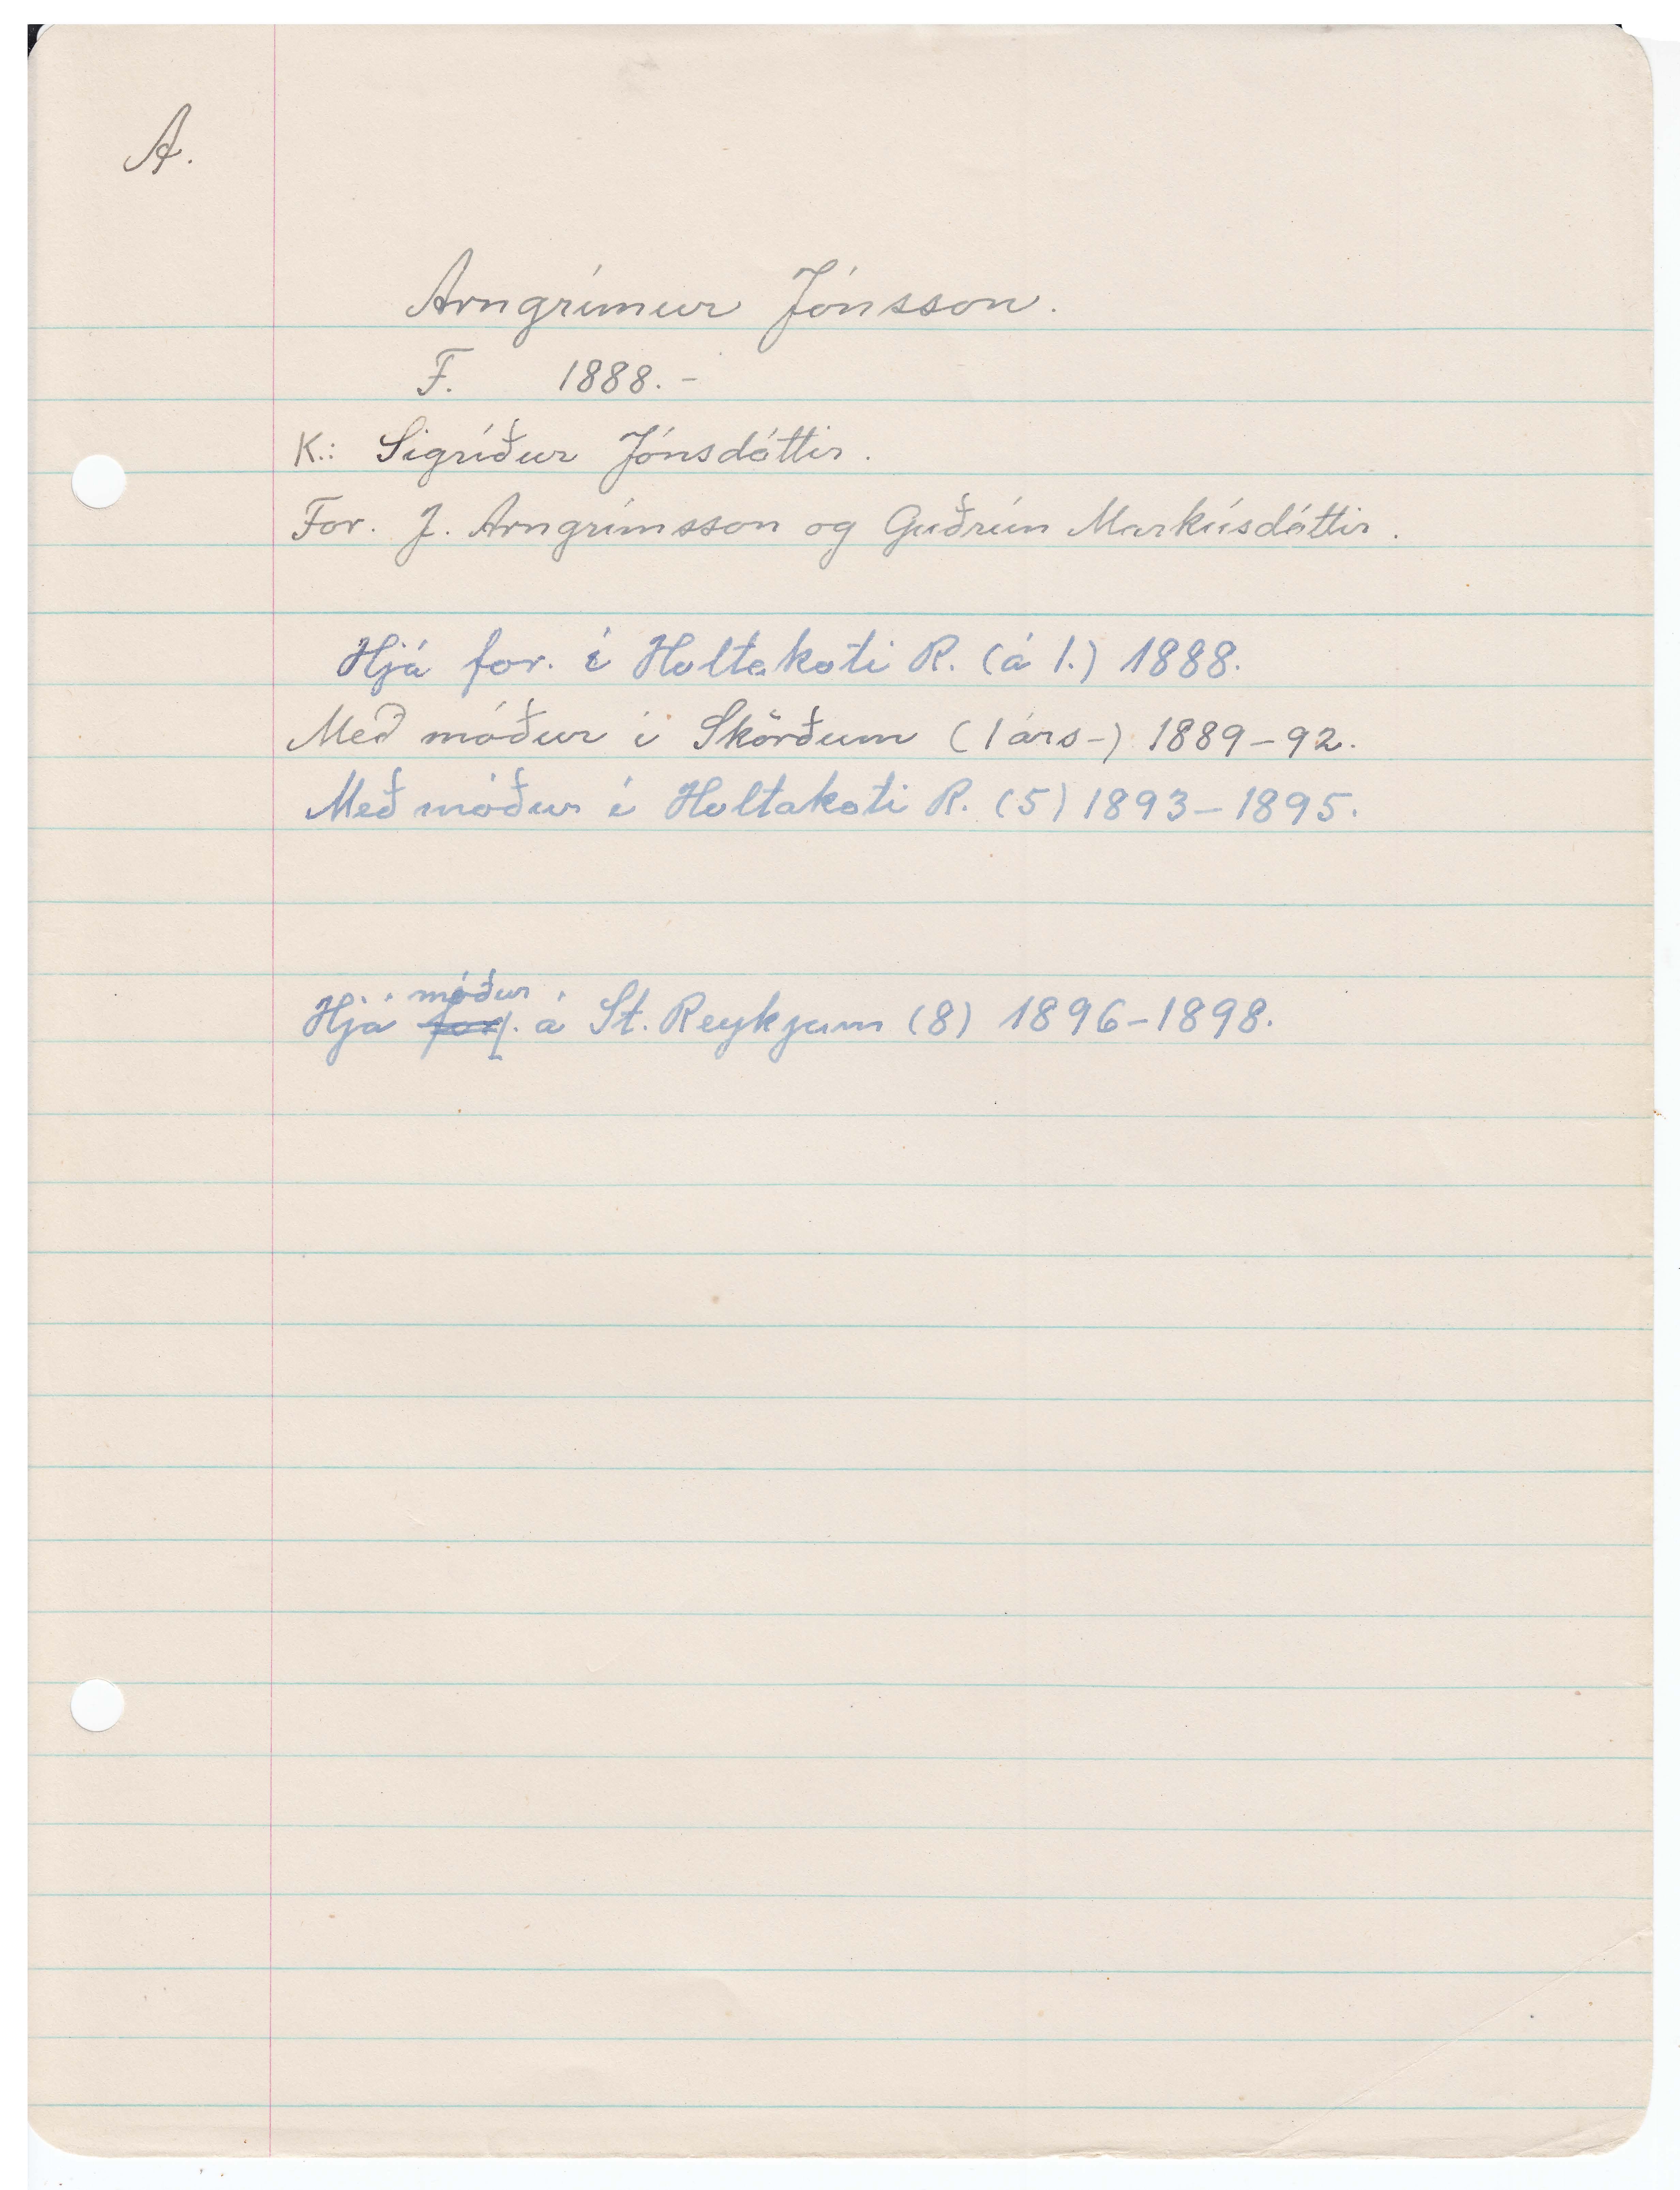 A.
Arngrímur Jónsson.
F. 1888.-
K.: Sigríður Jónsdóttir.
For. J. Arngrímsson og Guðrún Markúsdóttir.
Hjá for. í Holtakoti R. (á 1.) 1888.
Með móður í Skörðum (1 árs-) 1889-92.
Með móður í Holtakoti R. (5) 1893-1895.
móður
Hjá for. á St. Reykjum (8) 1896-1898.